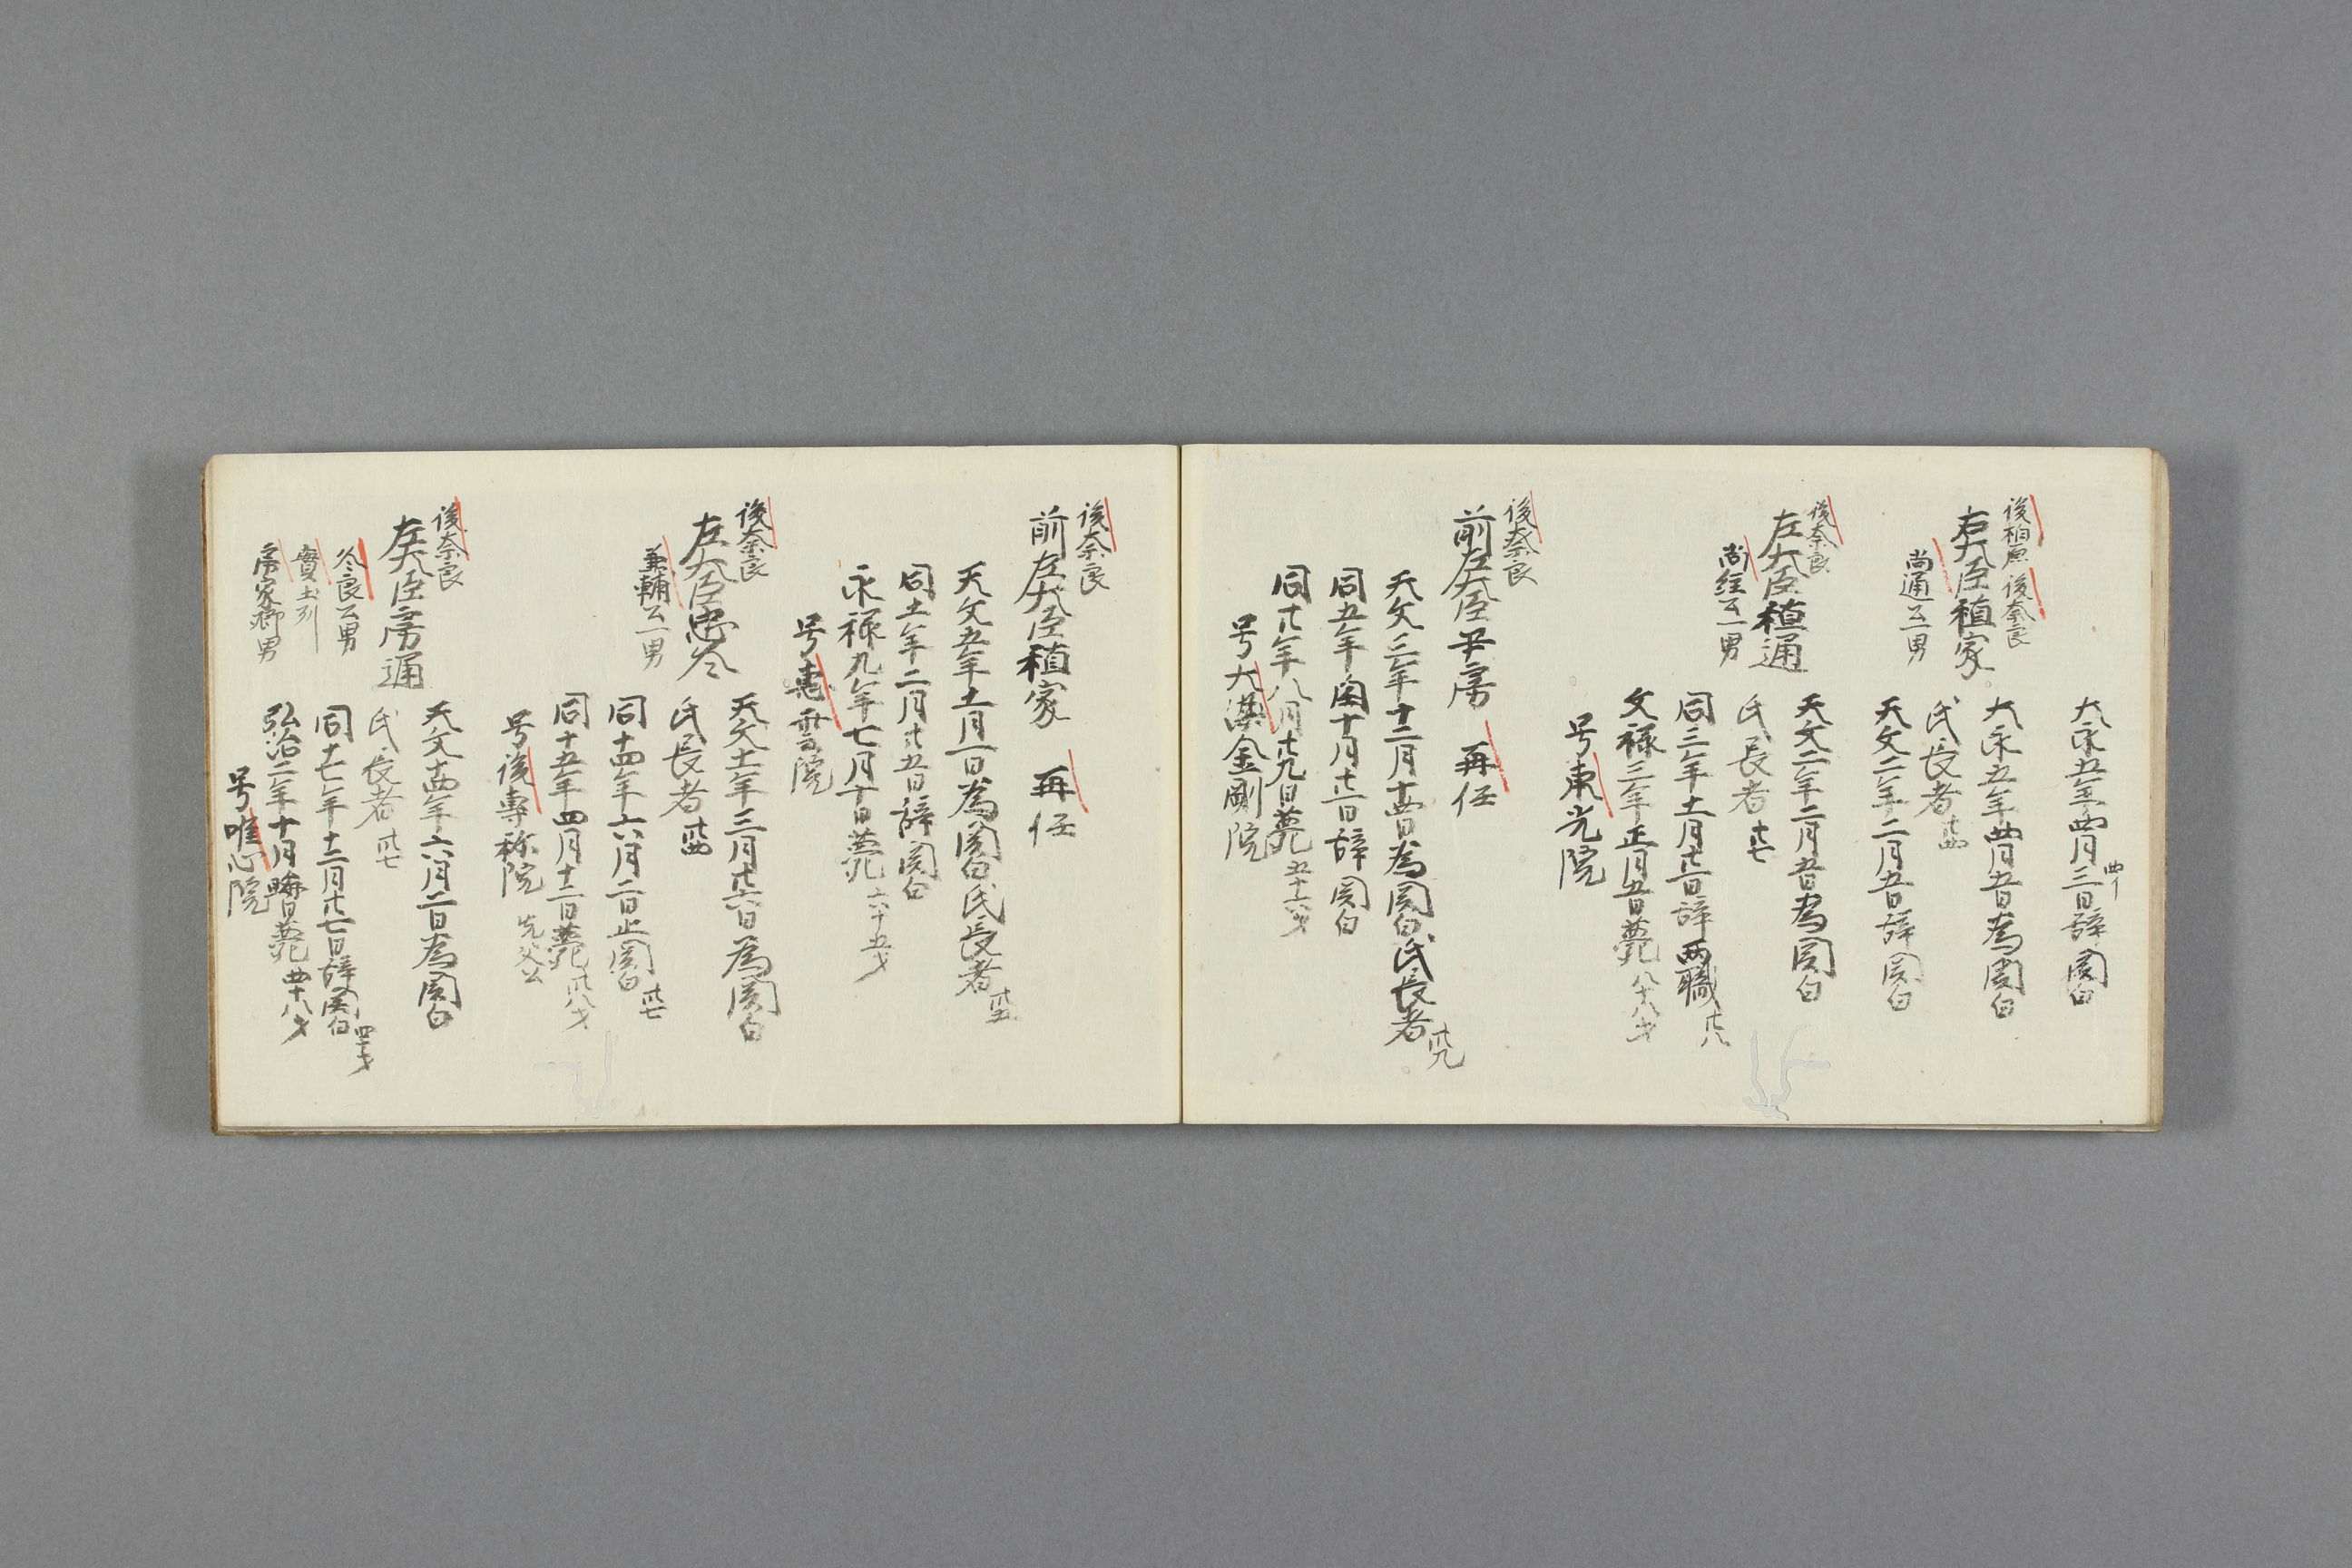 大永五年四月三日辞関白
四イ
後柏原 後奈良
右大臣稙家
尚通公一男
大永五年四月五日為関白
氏長者 廿四
天文二年二月五日辞関白
後奈良
左大臣稙通
尚経公一男
天文二年二月五日為関白
氏長者 廿七
同三年十一月廿一日辞両職 廿八
文禄三年正月五日薨 八十八才
号東光院
後奈良
前左大臣尹房 再任
天文三年十二月十四日為関白氏長者 卅九
同五年閏十月廿一日辞関白
同廿年八月廿九日薨 五十六才
号大染金剛院
後奈良
前左大臣稙家 再任
天文五年十一月一日為関白氏長者 卅五
同十一年二月廿五日辞関白
永禄九年七月十日薨 六十五才
号恵雲院
後奈良
左大臣忠冬
兼輔公一男
天文十一年三月廿六日為関白
氏長者 卅四
同十四年六月二日止関白 卅七
同十五年四月十二日薨 卅八才
号後専称院 先父公
後奈良
左大臣房通
冬良公男
實土州
房家卿男
天文十四年六月二日為関白
氏長者 卅七
同十七年十二月廿七日辞関白 四十才
弘治二年十月晦日薨 四十八才
号唯心院